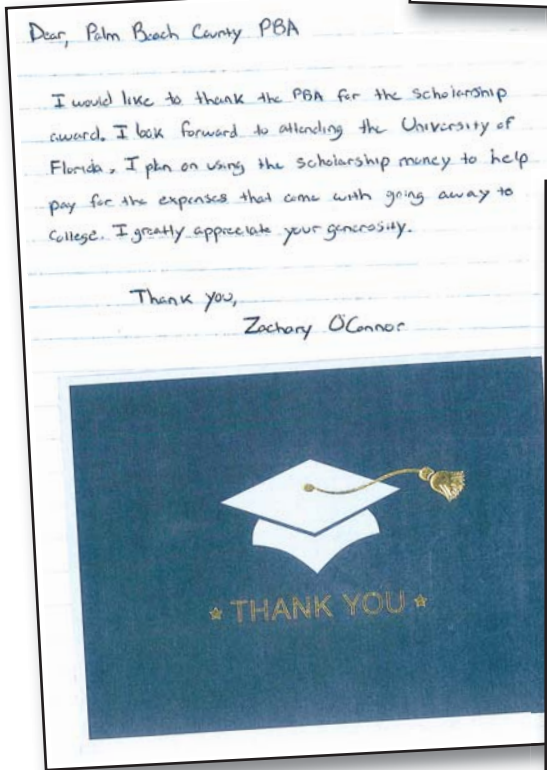 Dear, Palm Beach County PBA
I would like to thank the PBA for the scholarship
award. I look forward to attending the University of
Florida, I plan on using the scholarship money to help
pay for the expenses that come with going away to
College. I greatly appreciate your generosity.
Thank you,
Zachary O'Connor
★ THANK YOU ★